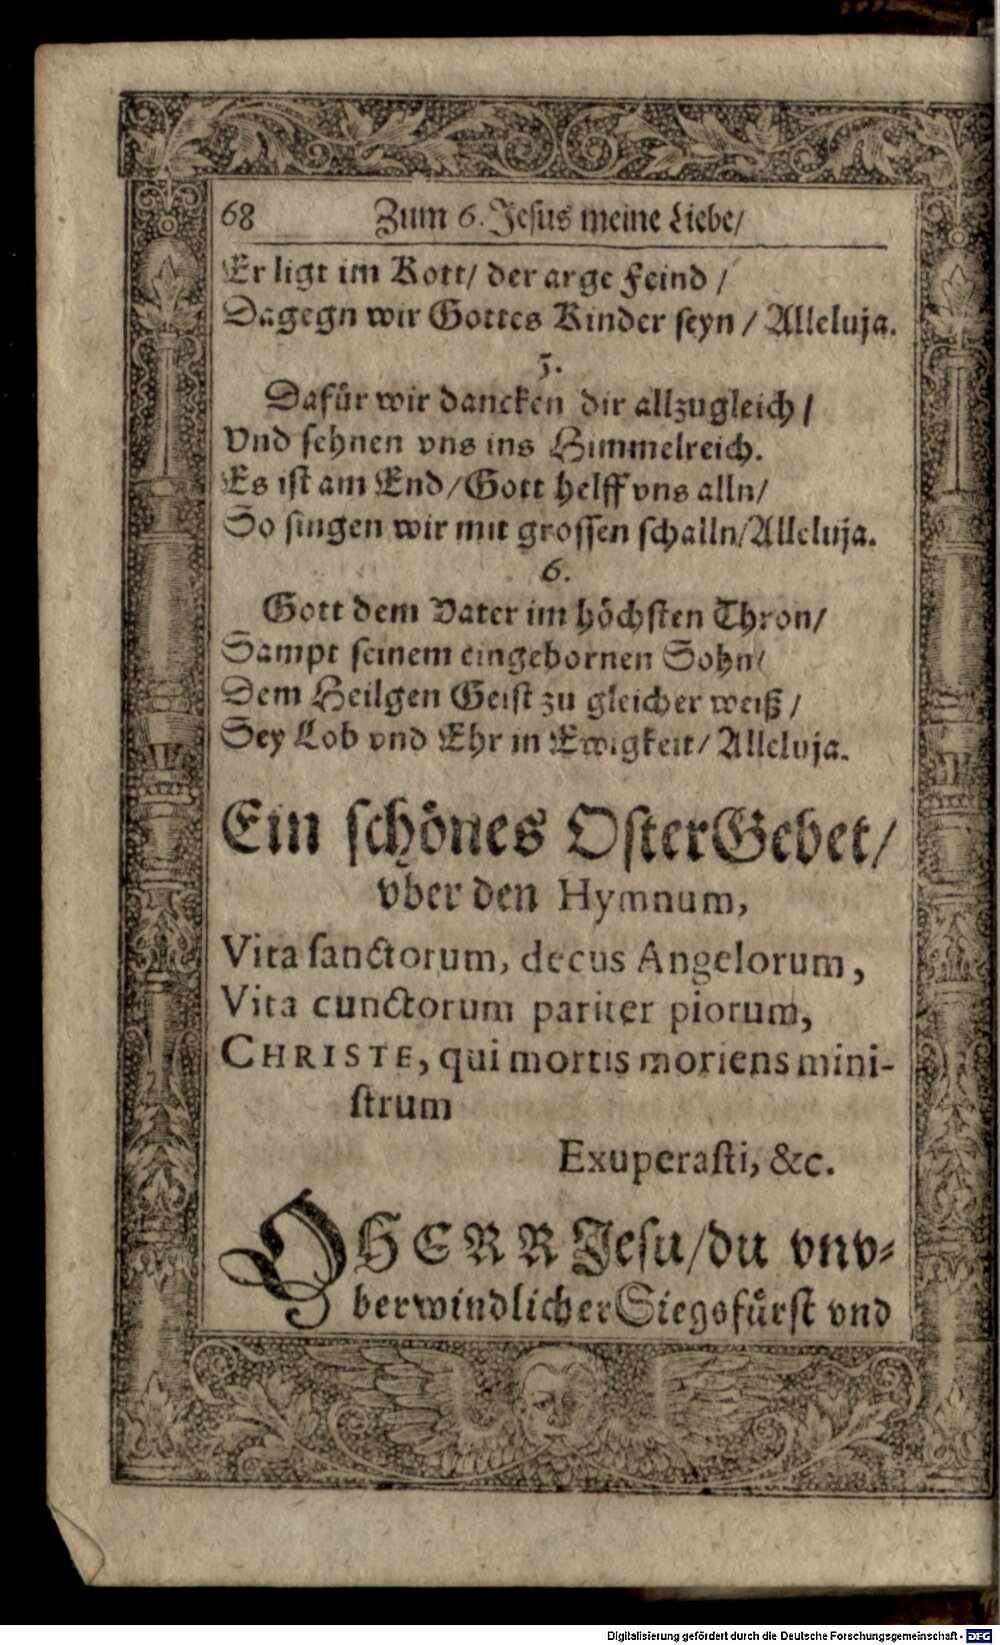 68 Zum 6. Jesus meine Liebe/
Er ligt im Kott/ der arge Feind /
Dagegn wir Gottes Kinder seyn / Alleluja.
5.
Dafür wir dancken dir allzugleich /
Vnd sehnen vns ins Himmelreich.
Es ist am End/Gott helff vns alln/
So singen wir mit grossen schalln/Alleluja.
6.
Gott dem Vater im höchsten Thron/
Sampt seinem eingebornen Sohn/
Dem Heilgen Geist zu gleicher weiß /
Sey Lob vnd Ehr in Ewigkeit/ Alleluja.
Ein schönes OsterGebet/
vber den Hymnum,
Vita sanctorum, decus Angelorum,
Vita cunctorum pariter piorum,
CHRISTE, qui mortis moriens mini-
strum
Exuperasti, &c.
O HERR Jesu/du vnv-
berwindlicher Siegsfürst vnd
Digitalisierung gefördert durch die Deutsche Forschungsgemeinschaft - DFG